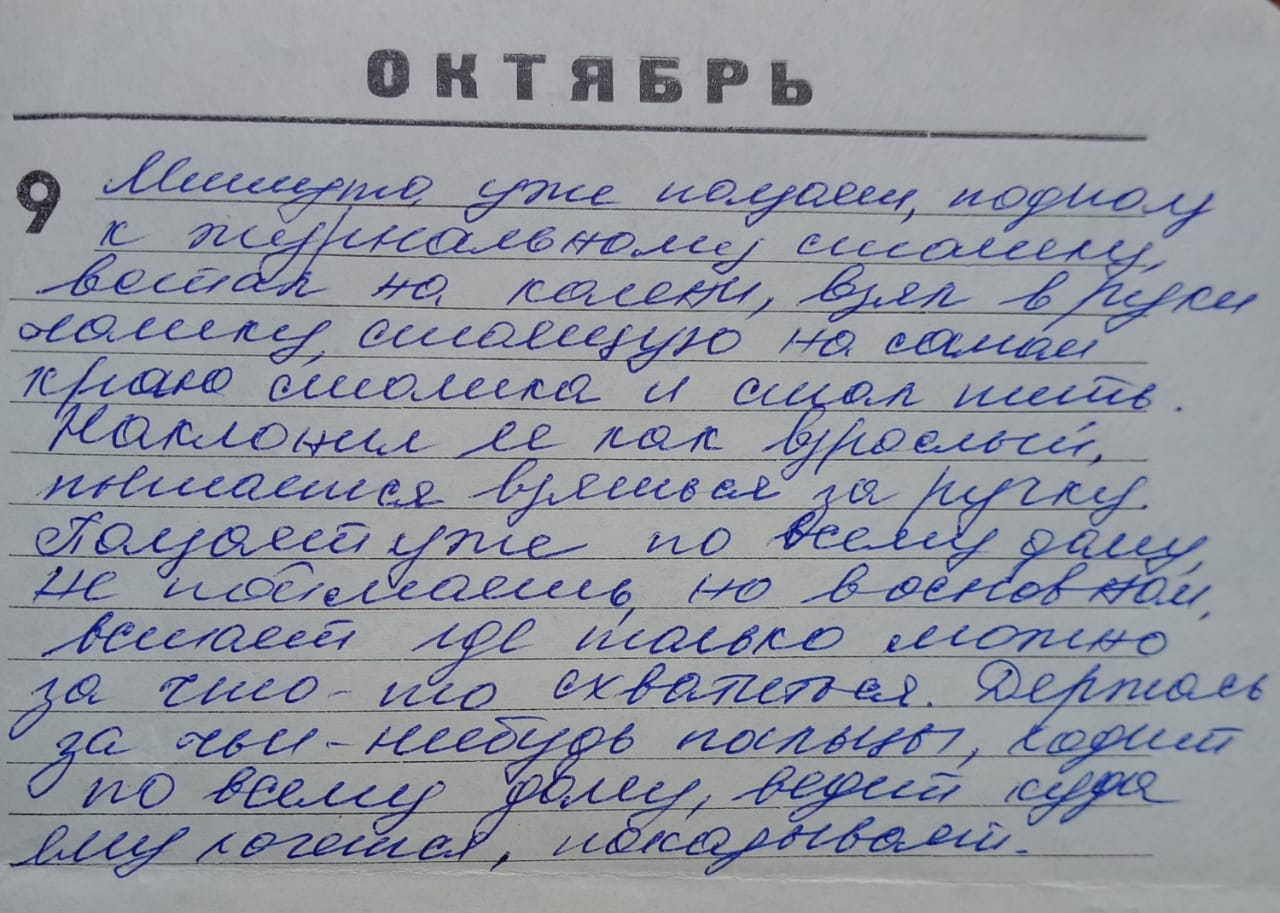 ОКТЯБРЬ
9 Мишутка уже ползает, подполз
к журнальному столику,
встал на колени, взял в руки
чашку, стоящую на самом
краю столика и стал пить.
Наклонил ее как взрослый,
пытается взяться за ручку.
Ползает уже по всему дому,
не поймаешь, но в основном,
встает где только можно
за что-то схватиться. Держась
за чьи-нибудь пальцы, ходит
по всему дому, ведет куда
ему хочется, показывает.